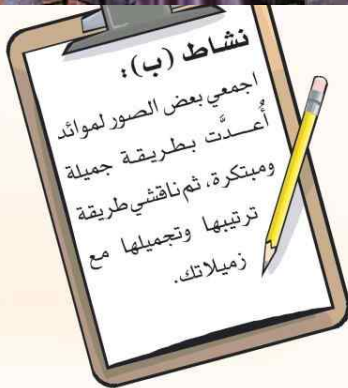 نشاط (ب):
اجمعي بعض الصور لموائد
أُعــدَّت بطـريقـة جميلة
ومبتكرة، ثم ناقشي طريقة
ترتيبها وتجميلها مع
زميلاتك.